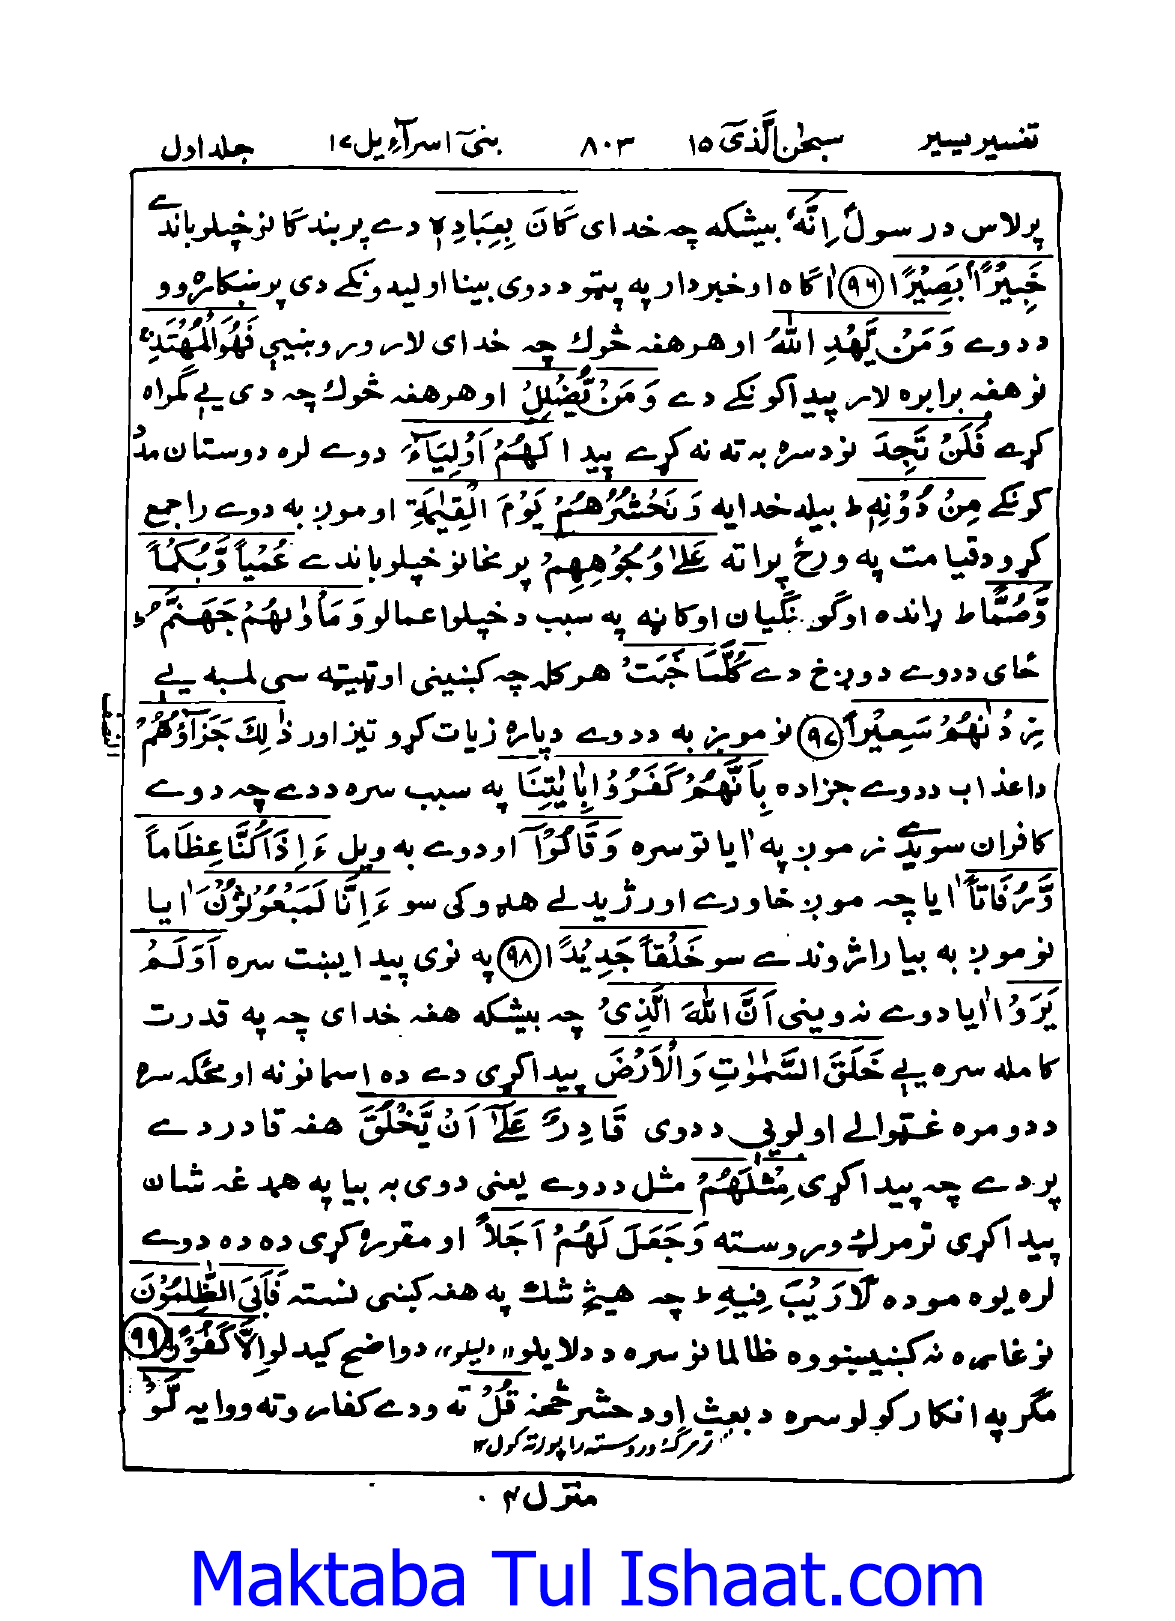 تفسیر یسیر سبحٰن الَّذیٓ ۱۵ ۸۰۳ بنیٓ اسرآءِیل ۱۷ جلد اول
پرلاس در سولٌ اِنَّهٗ بیشکه چہ خدای کَانَ بِعِبَادِهٖ دے پر بندکانو خپلو باندے
خَبِیْرًاۢ بَصِیْرًا ﴿۹۶﴾ اٰکاه او خبردار په پټو ددوی بینا او لیدونکے دی پر ښکارہ وو
ددوے وَمَنْ یَّهْدِ اللّٰهُ او هر هغه څوک چہ خدای لار ورو ښیې فَهُوَ الْمُهْتَدِۚ
نو هغه برابره لار پیدا کونکے دے وَمَنْ یُّضْلِلْ او هر هغه څوک چہ دی یې گمراه
کړے فَلَنْ تَجِدَ نو دسره به ته نه کړے پیدا لَهُمْ اَوْلِیَآءَ دوے لره دوستان مدد
کونکے مِنْ دُوْنِهٖ ط بیله خدایه وَنَحْشُرُهُمْ یَوْمَ الْقِیٰمَةِ او موږ به دوے را جمع
کړو دقیامت په ورځ پراته عَلٰی وُجُوْهِهِمْ پر مخانو خپلو باندے عُمْیاً وَّبُکْماً
وَّصُمّاً ط ړانده او گونگیان او کاڼه په سبب دخپلو اعمالو وَمَاْوٰىهُمْ جَهَنَّمُ ط
ځای ددوے دوږخ دے کُلَّمَا خَبَتْ هر کله چہ کښیني او ټیټه سی لمبه یې
زِدْنٰهُمْ سَعِیْراً ﴿۹۷﴾ نو موږ به ددوے دپاره زیات کړو تیز اور ذٰلِكَ جَزَآؤُهُمْ
النصف
داعذاب ددوے جزاده بِاَنَّهُمْ کَفَرُوْا بِاٰیٰتِنَا په سبب سره ددے چہ دوے
کافران سویدے زموږ په اٰیاتو سره وَقَالُوْٓا او دوے به ویل ءَاِذَا کُنَّا عِظَاماً
وَّرُفَاتاً اٰیا چہ موږ خاورے او رژیدلے هډوکی سو ءَاِنَّا لَمَبْعُوْثُوْنَ اٰیا
نو موږ به بیا را ژوندے سو خَلْقاً جَدِیْدًا ﴿۹۸﴾ په نوی پیدایښت سره اَوَلَمْ
یَرَوْا اٰیا دوے نه ویني اَنَّ اللّٰهَ الَّذِیْ چہ بیشکه هغه خدای چہ په قدرت
کامله سره یې خَلَقَ السَّمٰوٰتِ وَالْاَرْضَ پیدا کړی دے ده اسمانونه او محکه سره
ددومره غټوالے او لویي ددوی قَادِرٌ عَلٰٓی اَنْ یَّخْلُقَ هغه قادر دے
پر دے چہ پیدا کړی مِثْلَهُمْ مثل ددوے یعنی دوی به بیا په همدغہ شان
پیدا کړی تر مرګ وروسته وَجَعَلَ لَهُمْ اَجَلاً او مقرره کړی ده ده دوے
لره یوه موده لَّا رَیْبَ فِیْهِ ط چہ هیڅ شک په هغه کښی نسته فَاَبَی الظّٰلِمُوْنَ
نو غاړه نه کښیښووه ظالمانو سره ددلایلو "دلیلو" دواضح کیدلو اِلَّا کُفُوْرًا ﴿۹۹﴾
مگر په انکار کولو سره دبعث او دحشر څخه قُلْ ته ودے کفارو ته ووایه لَّوْ
تر مرګ وروسته را پورته کول ۱۲
منزل ۴
Maktaba Tul Ishaat.com